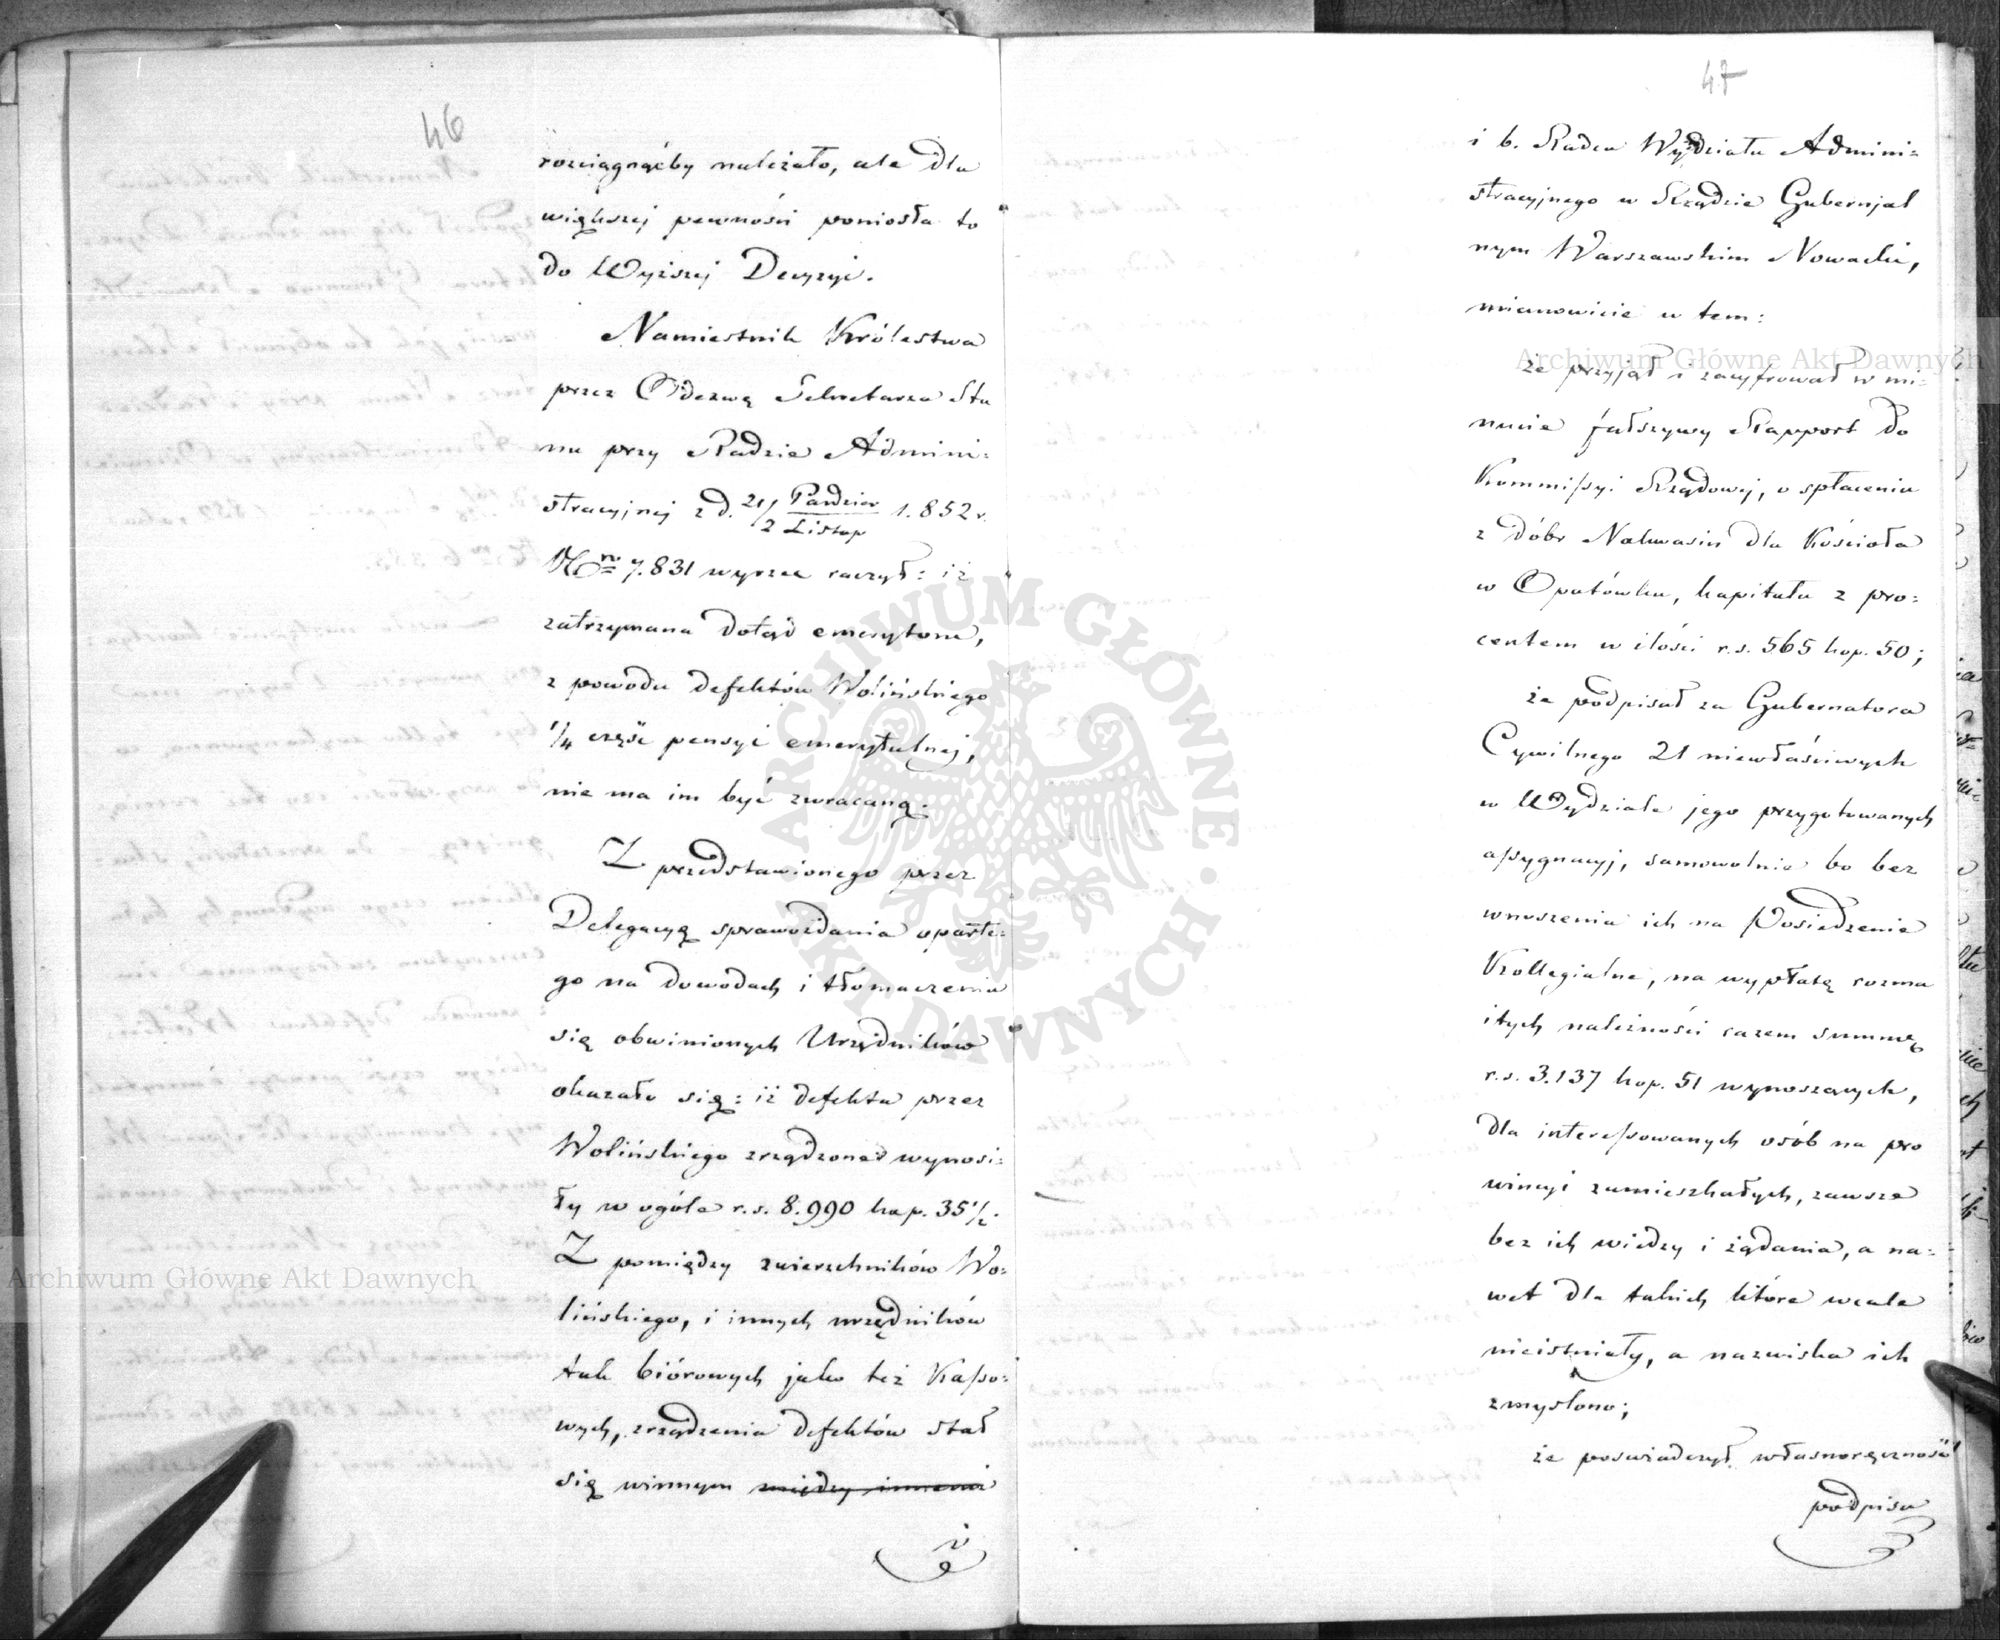 46
rozciągnąćby należało, ale dla
większej pewności poniosła to
do Wyższej Decyzyi.
Namiestnik Królestwa
przez Odezwę Sekretarza Sta
nu przy Radzie Admini=
stracyjnej z d. 21/2 Paździer/Listop 1.852 r.
Nro 7.831 wyrzec raczył: iż
zatrzymana dotąd emerytom,
z powodu defektów Wolińskiego
1/4 część pensyi emerytalnej,
nie ma im być zwracaną.
Z przedstawionego przez
Delegacyą sprawozdania oparte=
go na dowodach i tłomaczeniu
się obwinionych Urzędników
okazało się: iż defekta przez
Wolińskiego zrządzone wynosi=
ły w ogóle r.s. 8.990 kop. 35 1/2.
Z pomiędzy zwierzchników Wo=
lińskiego, i innych urzędników
tak biórowych jako też Kasso=
wych, zrządzenia defektów stał
się winnym między innemi
i
47
i b. Radca Wydziału Admini=
stracyjnego w Rządzie Gubernjal
nym Warszawskim Nowacki,
mianowicie w tem:
że przyjął i zacyfrował w mi=
nucie fałszywy Rapport do
Kommissyi Rządowej, o spłaceniu
z dóbr Nakwasin dla Kościoła
w Opatówku, kapitału z pro=
centem w ilości r.s. 565 kop. 50;
że podpisał za Gubernatora
Cywilnego 21 niewłaściwych
w Wydziale jego przygotowanych
assygnacyj, samowolnie bo bez
wnoszenia ich na Posiedzenie
Kollegialne, na wypłatę rozma
itych należności razem summę
r.s. 3.137 kop. 51 wynoszących,
dla interessowanych osób na pro
wincyi zamieszkałych, zawsze
bez ich wiedzy i żądania, a na=
wet dla takich które wcale
nieistniały, a nazwiska ich
zmyślono;
że poświadczył własnoręczność
podpisu
Archiwum Główne Akt Dawnych
Archiwum Główne Akt Dawnych
ARCHIWUM GŁÓWNE · AKT DAWNYCH ·